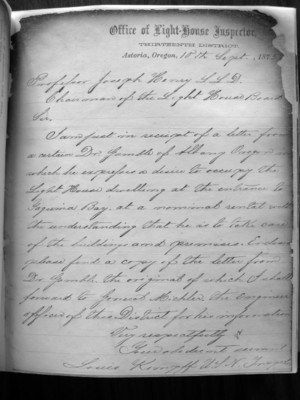 Office of Light-House Inspector,
THIRTEENTH DISTRICT,
Astoria, Oregon, 18th Sept. 187
Professor Joseph Henry L L. D.
Chairman of the Light House Board
Sir,
I am just in receipt of a letter from
a certain Dr. Gamble of Albany Oregon in
which he expresses a desire to occupy the
Light House dwelling at the entrance to
Yaquina Bay, at a nominal rental with
the understanding that he is to take care
of the buildings and premises. Enclosed
please find a copy of the letter from
Dr. Gamble the original of which I shall
forward to General Michler the Engineer
officer of this District for his information
Very respectfully
Your obedient servant
Louis Kempff U.S.N.